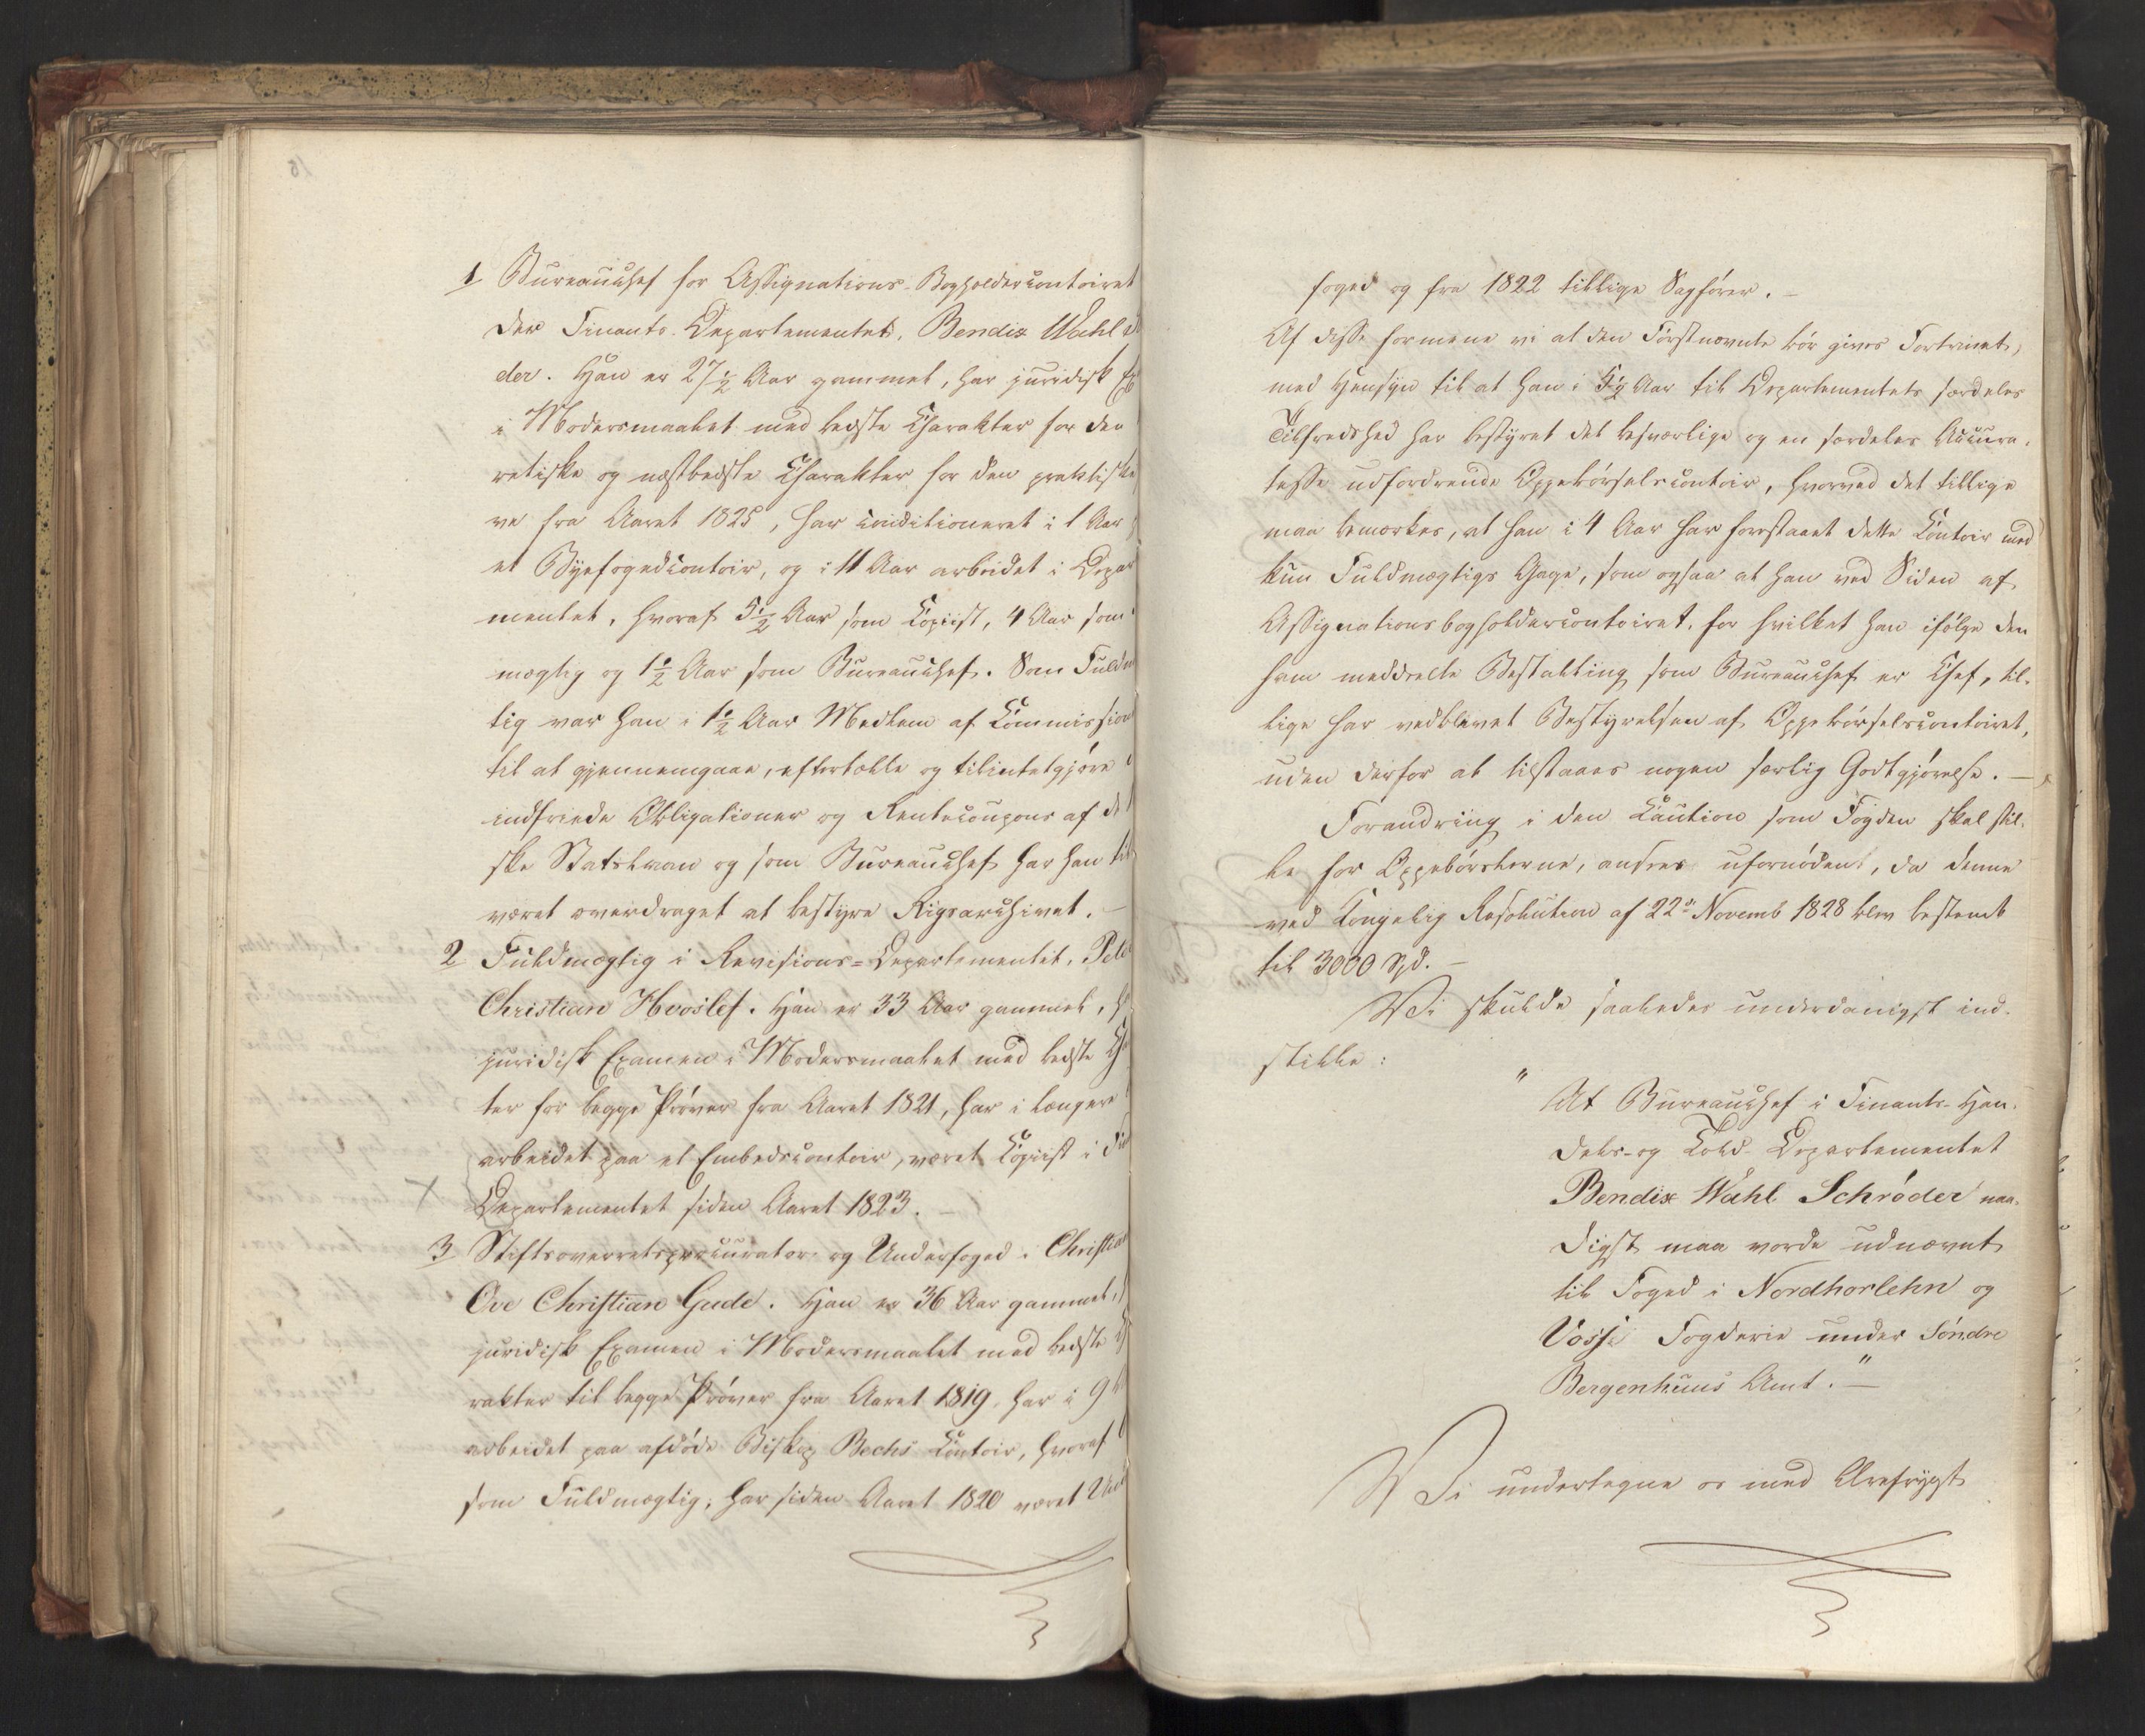 1 Bureauchef for Assignations-Bogholdercontoiret
der Finants-Departementet, Bendix Wahl
der. Han er 27½ Aar gammel, har juridisk Ex
i Modersmaalet med bedste Charakter for den
retiske og næstbedste Charakter for den praktiske
ve fra Aaret 1825, har conditioneret i 1 Aar
et Byefogedcontoir, og i 11 Aar arbeidet i Depar
mentet, hvoraf 5½ Aar som Copiist, 4 Aar som
mægtig og 1½ Aar som Bureauchef. Som Fuldm
tig var han i 1½ Aar Medlem af Commission
til at gjennemgaae, eftertælle og tilintetgjøre
indfriede Obligationer og Rentecoupons af det
ske Statslaan og som Bureauchef har han til
været overdraget at bestyre Rigsarchivet. —
2 Fuldmægtig i Revisions-Departementet, Peter
Christian Hvoslef. Han er 33 Aar gammel, h
juridisk Examen i Modersmaalet med bedste Cha
ter for begge Prøver fra Aaret 1821, har i længere
arbeidet paa et Embedscontoir, været Copiist i
Departementet siden Aaret 1823. —
3 Stiftsoverretsprocurator og Underfoged i Christia
Ove Christian Gude. Han er 36 Aar gammel,
juridisk Examen i Modersmaalet med bedste
rakter til begge Prøver fra Aaret 1819, har i 9
arbeidet paa afdøde Biskop Bechs Contoir, hvoraf
som Fuldmægtig, har siden Aaret 1820 været Und
foged og fra 1822 tillige Sagfører. —
Af disse formene vi at den Førstnævnte bør gives Fortrinet,
med Hensyn til at han i 5½ Aar til Departementets særdeles
Tilfredshed har bestyret det besværlige og en særdeles Accura-
tesse udfordrende Oppebørselscontoir, hvorved det tillige
maa bemærkes, at han i 4 Aar har forestaaet dette Contoir med
kun Fuldmægtigs Gage, som ogsaa at han ved Siden af
Assignationsbogholdercontoiret, for hvilket han ifølge den
ham meddeelte Bestalling som Bureauchef er Chef, til-
lige har vedblevet Bestyrelsen af Oppebørselscontoiret,
uden derfor at tilstaaes nogen særlig Godtgjørelse. —
Forandring i den Caution som Fogden skal stil-
le for Oppebørslerne, ansees ufornøden, da denne
ved Kongelig Resolution af 22de Novemb 1828 blev bestemt
til 3000 Spd. —
Vi skulde saaledes underdanigst ind-
stille:
" At Bureauchef i Finants- Han-
dels- og Told- Departementet
Bendix Wahl Schrøder naa-
digst maa vorde udnævnt
til Foged i Nordhorlehn og
Voss's Fogderie under Søndre
Bergenhuus Amt." —
Vi undertegne os med Ærefrygt